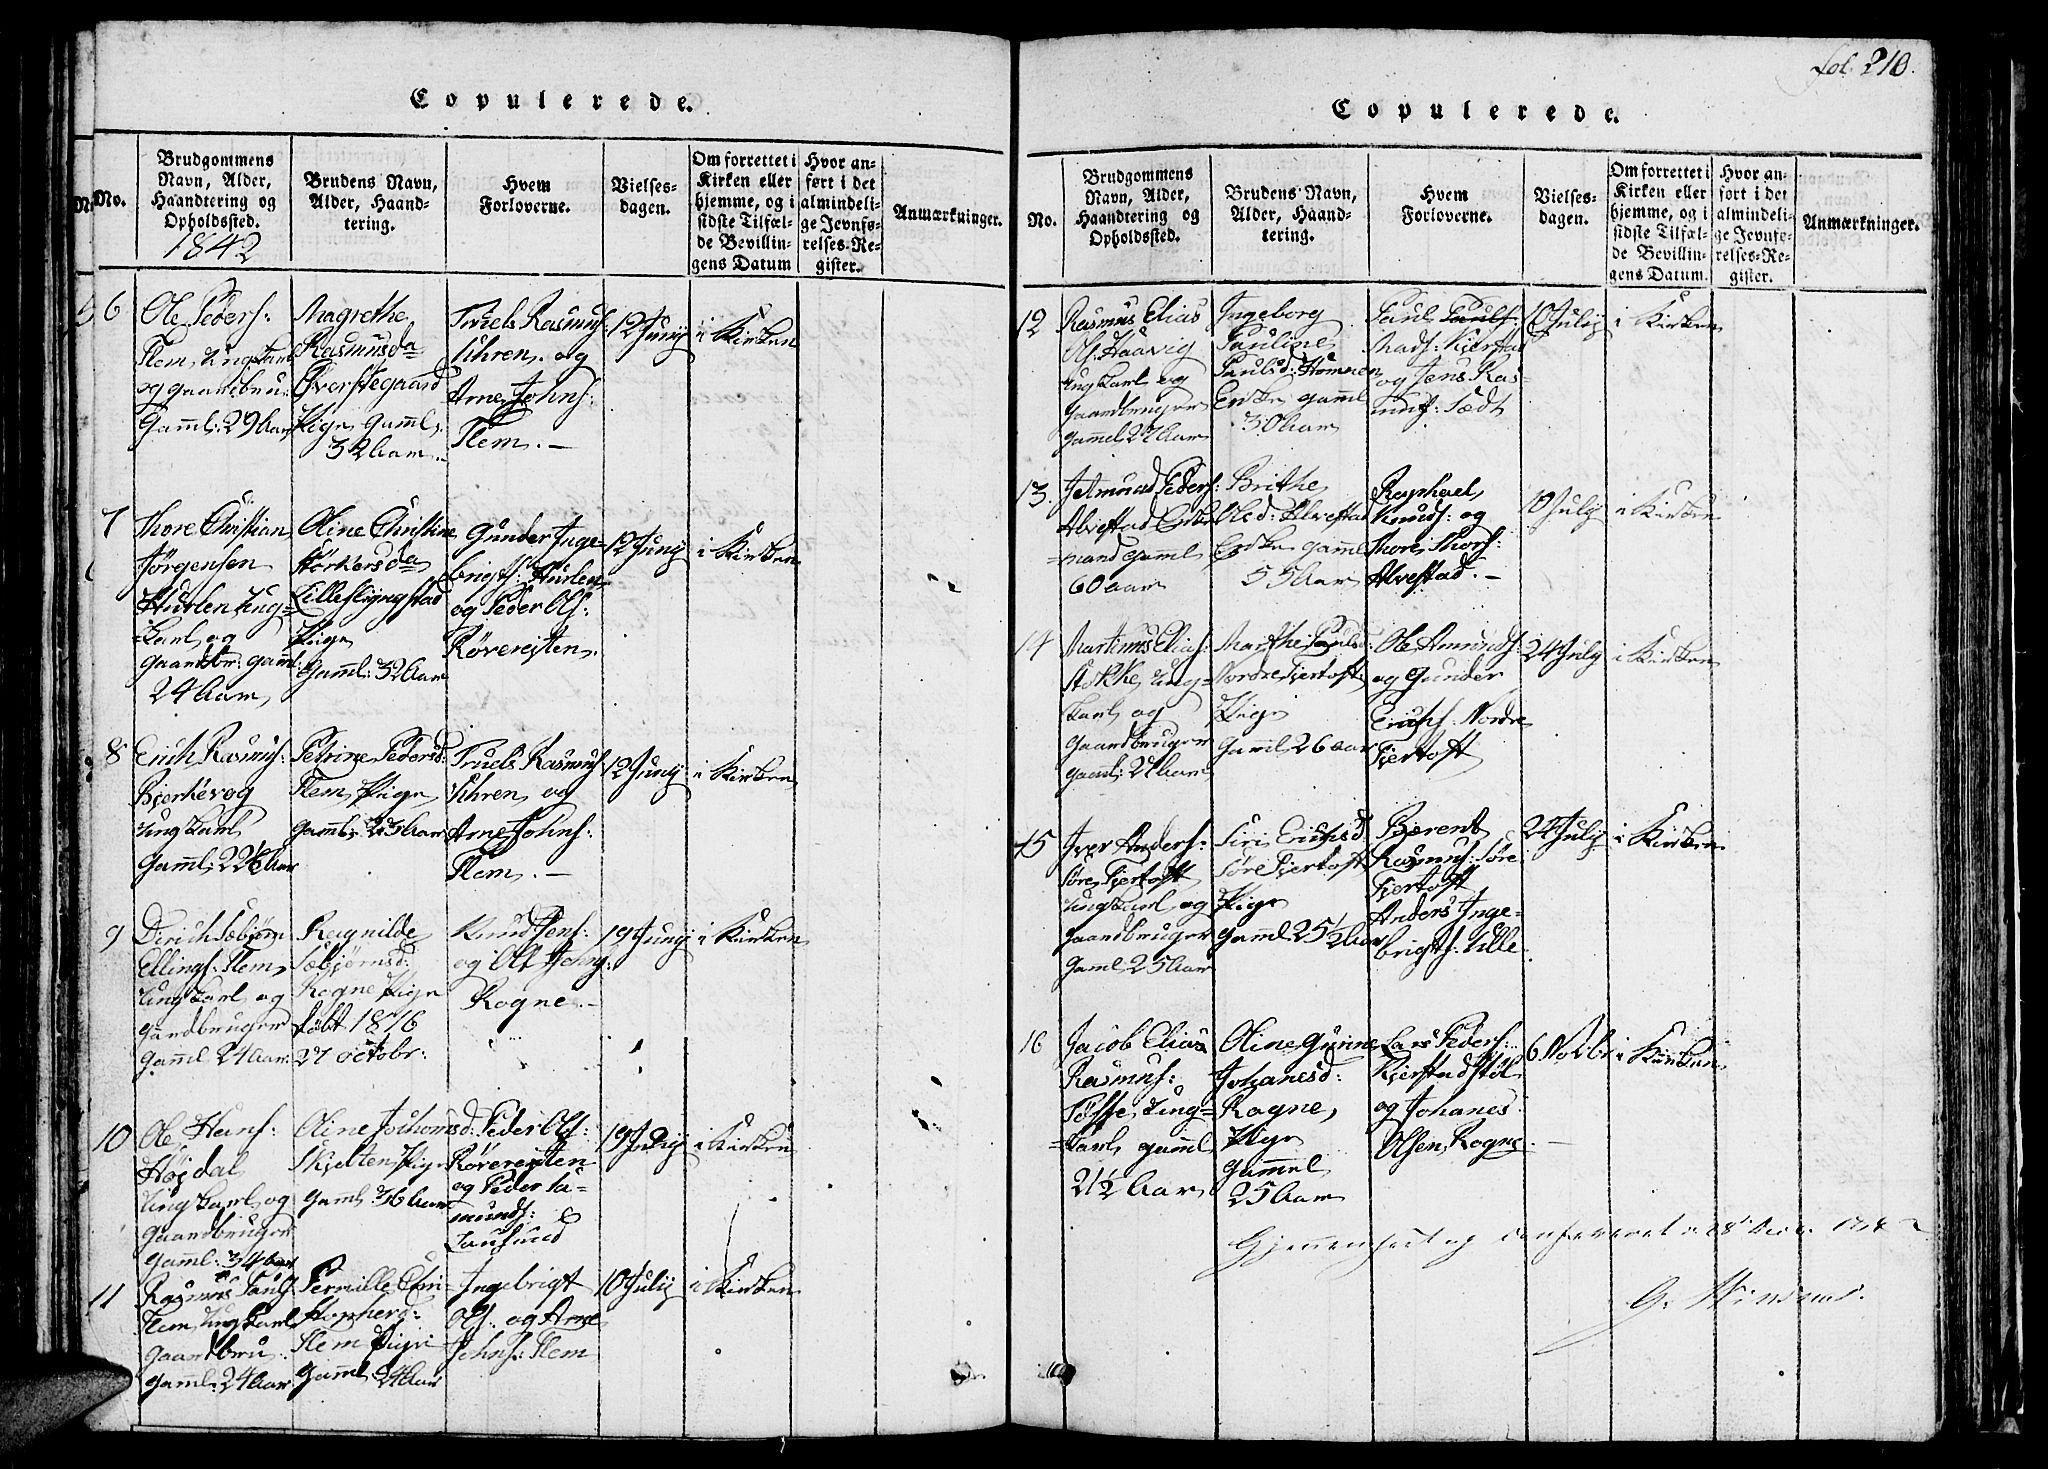 fol. 210.
Copulerede.
No.
Brudgommens
Navn, Alder,
Haandtering og
Opholdssted.
1842
Brudens Navn,
Alder, Haand-
tering.
Hvem
Forloverne.
Vielses-
dagen.
Om forrettet i
Kirken eller
hjemme, og i
sidste Tilfæl-
de Bevillin-
gens Datum
Hvor an-
ført i det
almindeli-
ge Jevnfø-
relses-Re-
gister.
Anmærkninger.
6
Ole Peders:
Flem, Ungkarl
og gaardbru.
Gaml: 29 Aar
Magrethe
Rasmusda
Øverstegaard
Pige Gaml.
32 Aar.
Truels Rasmus:
Uhren. og
Arne Johns:
Flem. —
12 Junij
i Kirken
7
Thore Christian
Jörgensen
Hurlen Ung=
=karl og
gaardbr: gaml:
24 Aar
Oline Christine
Störkersda
Lilleslyngstad
Pige
Gaml: 32 Aar
Gunder Inge-
brigts: Hurlen
og Peder Ols:
Røvereiten.
12 Junij
i Kirken
8
Erich Rasmus:
Bjerkevog
Ungkarl
Gaml: 22½ Aar
Petrine Pedersd:
Flem Pige
gaml: 23 Aar
Truels Rasmus:
Uhren og
Arne Johns:
Flem. —
12 Junij
i Kirken
9
Dirich Sæbjørn
Ellings: Flem
Ungkarl og
gaardbruger
gaml 24 Aar
Ragnilde
Sæbjørnsd:
Rogne Pige
født 1816
27 octobr:
Knud Jens:
og Ole Johns:
Rogne. —
19 Junij
i Kirken
10
Ole Hans:
Høidal
Ungkarl og
gaardbruger
gaml: 34 Aar
Oline Johansd:
Skjelten Pige
gaml 36 Aar
Peder Ols:
Røvereiten
og Peder Sa-
munds:
Lausund
19 Junij
i Kirken
11
Rasmus Pauls
Flem Ungkarl
gaardbru
gaml: 24 Aar
Pernille Chri
stopherd:
Flem Pige
gaml 24 Aar
Ingebrigt
Ols: og Arne
Johns: Flem
10 Julij
i Kirken
Copulerede.
No.
Brudgommens
Navn, Alder,
Haandtering og
Opholdssted.
Brudens Navn,
Alder, Haand-
tering.
Hvem
Forloverne.
Vielses-
dagen.
Om forrettet i
Kirken eller
hjemme, og i
sidste Tilfæl-
de Bevillin-
gens Datum.
Hvor an-
ført i det
almindeli-
ge Jevnfø-
relses-Re-
gister.
Anmærkninger.
12
Rasmus Elias
Ols: Haavig
Ungkarl og
gaardbruger
gammel 27 Aar
Ingeborg
Pauline
Paulsd: Hamnen
Enke gaml
30 Aar
Paul Pauls:
Mads: Kjerstad
og Jens Ras-
mus: Sædt
10 Julij
i Kirken
13.
Jetmund Peders:
Alvestad Enke
=mand gaml
60 aar
Brithe
Olsd: Alvestad
Enke gaml
55 Aar
Raphael
Knuds: og
Thore Thors:
Alvestad. —
10 Julij
i Kirken
14
Martinus Elias:
Stokke, Ung=
karl og
gaardbruger
gaml: 27 Aar
Marthe Paulsd:
Nordre Fjertoft
Pige
gaml 26 aar
Ole Amunds:
og Gunder
Erichs: Nordre
Fjertoft
24 Julij
i Kirken
15
Iver Anders:
Søre Fjertoft
Ungkarl og
gaardbruger
gaml 25 Aar
Siri Erichsd:
Søre Fjertoft
Pige
gaml 25½ Aar
Berent
Rasmus: Søre
Fjertoft
Anders Inge-
brigts: Lille
24 Julij
i Kirken
16
Jacob Elias
Rasmus:
Ung=
=karl gaml
21½ Aar
Oline Gunne
Johanesd:
Rogne,
Pige
gammel
25 Aar
Lars Peders:
Kjerstadstøl
og Johanes
Olsen Rogne. —
6 Novbr
i Kirken
Gjennemseet og